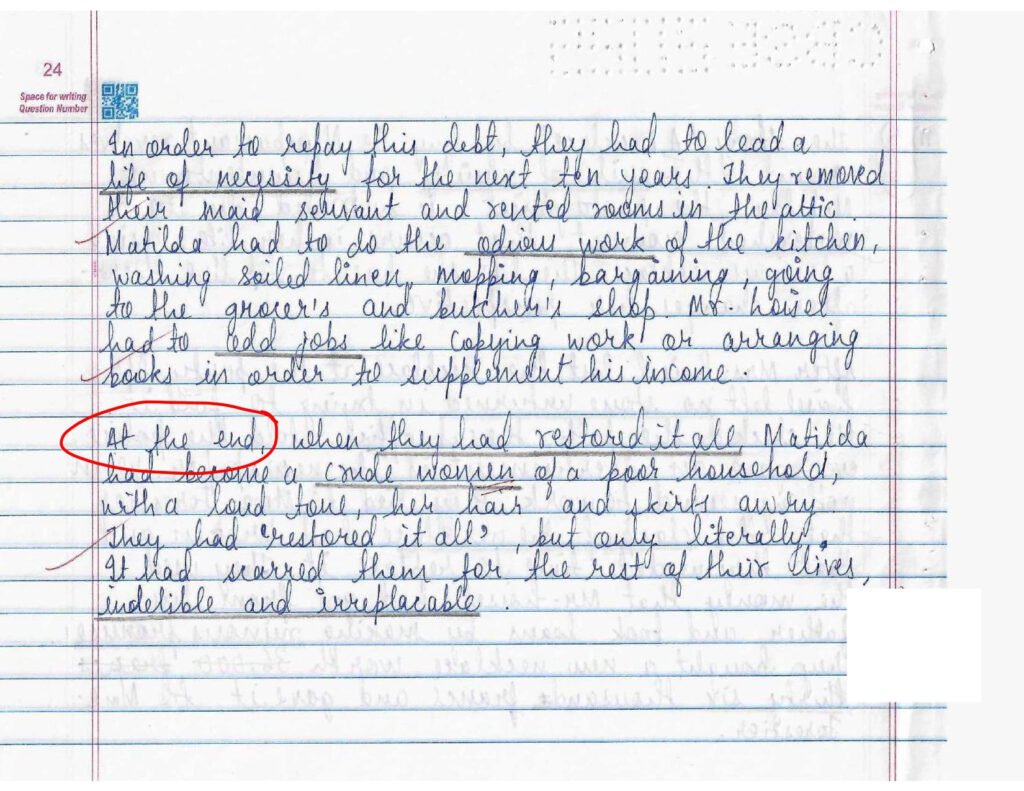 24
Space for writing
Question Number
In order to repay this debt, they had to lead a
life of necessity for the next ten years. They removed
their maid servant and rented rooms in the attic.
Matilda had to do the odious work of the kitchen,
washing soiled linen, mopping, bargaining, going
to the grocer's and butcher's shop. Mr loisel
had to odd jobs like copying work or arranging
books in order to supplement his income.
At the end, when they had restored it all Matilda
had become a crude women of a poor household,
with a loud tone, her hair and skirts awry.
They had "restored it all", but only literally.
It had scarred them for the rest of their lives,
indelible and irreplacable.